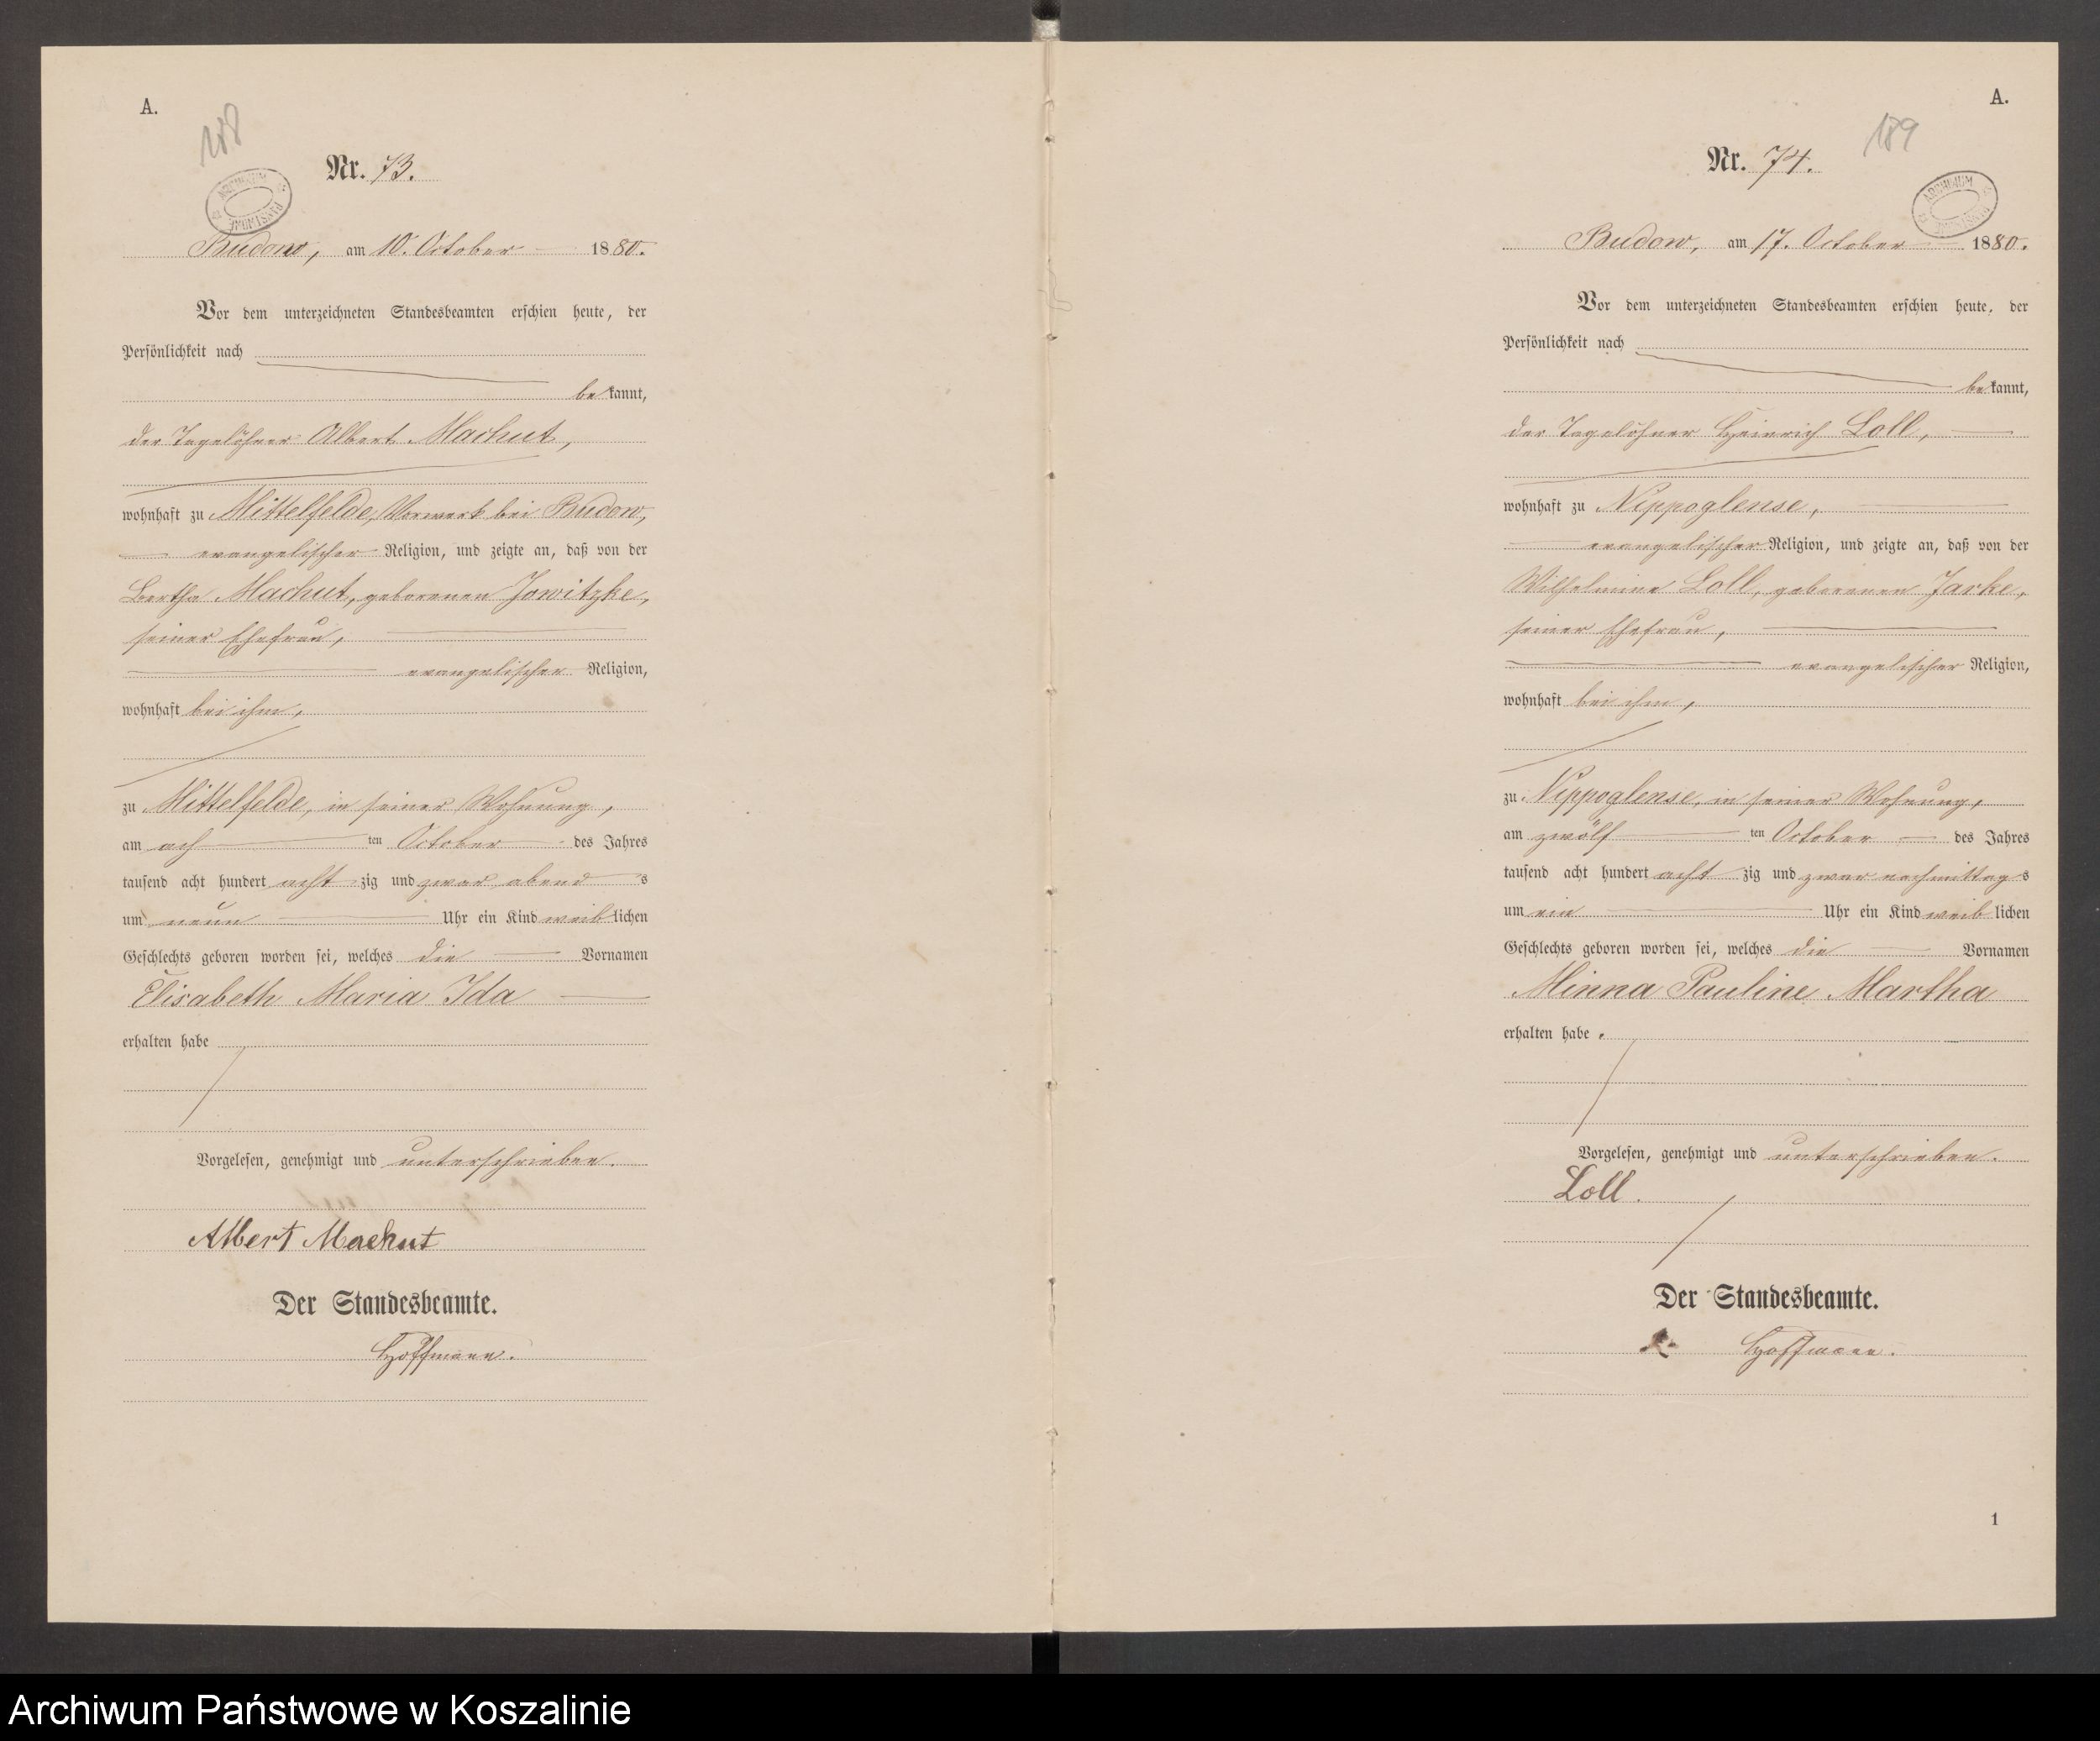 A.
188
Nr. 73.
ARCHIWUM PAŃSTWOWE
Budow, am 10. October 1880.
Vor dem unterzeichneten Standesbeamten erschien heute, der
Persönlichkeit nach
bekannt,
der Tagelöhner Albert Machut,
wohnhaft zu Mittelfelde, Vorwerk bei Budow,
evangelischer Religion, und zeigte an, daß von der
Bertha Machut, geborenen Jowitzke,
seiner Ehefrau,
evangelischer Religion,
wohnhaft bei ihm,
zu Mittelfelde, in seiner Wohnung,
am ach ten October des Jahres
tausend acht hundert acht zig und zwar abend s
um neun Uhr ein Kind weib lichen
Geschlechts geboren worden sei, welches die Vornamen
Elisabeth Maria Ida
erhalten habe
Vorgelesen, genehmigt und unterschrieben.
Albert Machut
Der Standesbeamte.
Hoffmann.
A.
189
Nr. 74.
ARCHIWUM PAŃSTWOWE
Budow, am 17. October 1880.
Vor dem unterzeichneten Standesbeamten erschien heute, der
Persönlichkeit nach
bekannt,
der Tagelöhner Heinrich Loll,
wohnhaft zu Nippoglense,
evangelischer Religion, und zeigte an, daß von der
Wilhelmine Loll, geborenen Jaske,
seiner Ehefrau,
evangelischer Religion,
wohnhaft bei ihm,
zu Nippoglense, in seiner Wohnung,
am zwölf ten October des Jahres
tausend acht hundert acht zig und zwar nachmittag s
um ein Uhr ein Kind weib lichen
Geschlechts geboren worden sei, welches die Vornamen
Minna Pauline Martha
erhalten habe.
Vorgelesen, genehmigt und unterschrieben.
Loll.
Der Standesbeamte.
Hoffmann.
1
Archiwum Państwowe w Koszalinie